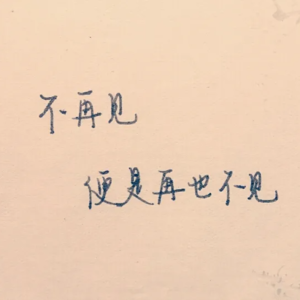 不再见
便是再也不见